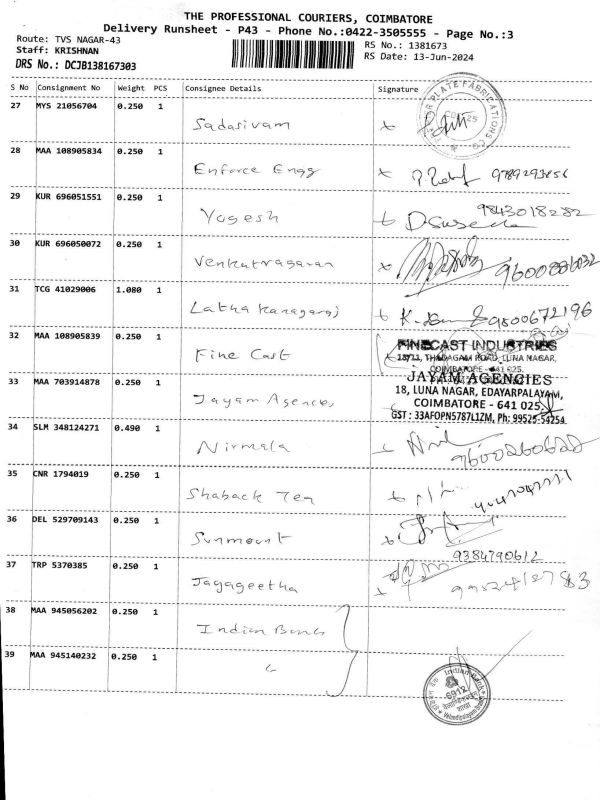 THE PROFESSIONAL COURIERS, COIMBATORE
Delivery Runsheet - P43 - Phone No.:0422-3505555 - Page No.:3
Route: TVS NAGAR-43
RS No.: 1381673
Staff: KRISHNAN
RS Date: 13-Jun-2024
DRS No.: DCJB138167303
S No Consignment No Weight PCS Consignee Details Signature
27 MYS 21056704 0.250 1
Sadasivam
PLATE FABRICATIONS
28 MAA 108905834 0.250 1
Enforce Engg 9789293656
29 KUR 696051551 0.250 1
Yogesh 9843018282
30 KUR 696050072 0.250 1
Venkatragavan
31 TCG 41029006 1.080 1
Latha Kanagaraj 9500672196
32 MAA 108905839 0.250 1
Fine Cast
FINECAST INDUSTRIES
18/71, THADAGAM ROAD, LUNA NAGAR,
COIMBATORE - 641 025.
33 MAA 703914878 0.250 1
Jayam Agencies
JAYAM AGENCIES
18, LUNA NAGAR, EDAYARPALAYAM,
COIMBATORE - 641 025.
GST : 33AFOPN5787L1ZM, Ph: 99525-54254
34 SLM 348124271 0.490 1
Nirmala 9600260628
35 CNR 1794019 0.250 1
Shaback Tea
36 DEL 529709143 0.250 1
Sunmount
9384790612
37 TRP 5370385 0.250 1
Jayageetha
38 MAA 945056202 0.250 1
Indian Bank
39 MAA 945140232 0.250 1
Indian Bank
6912